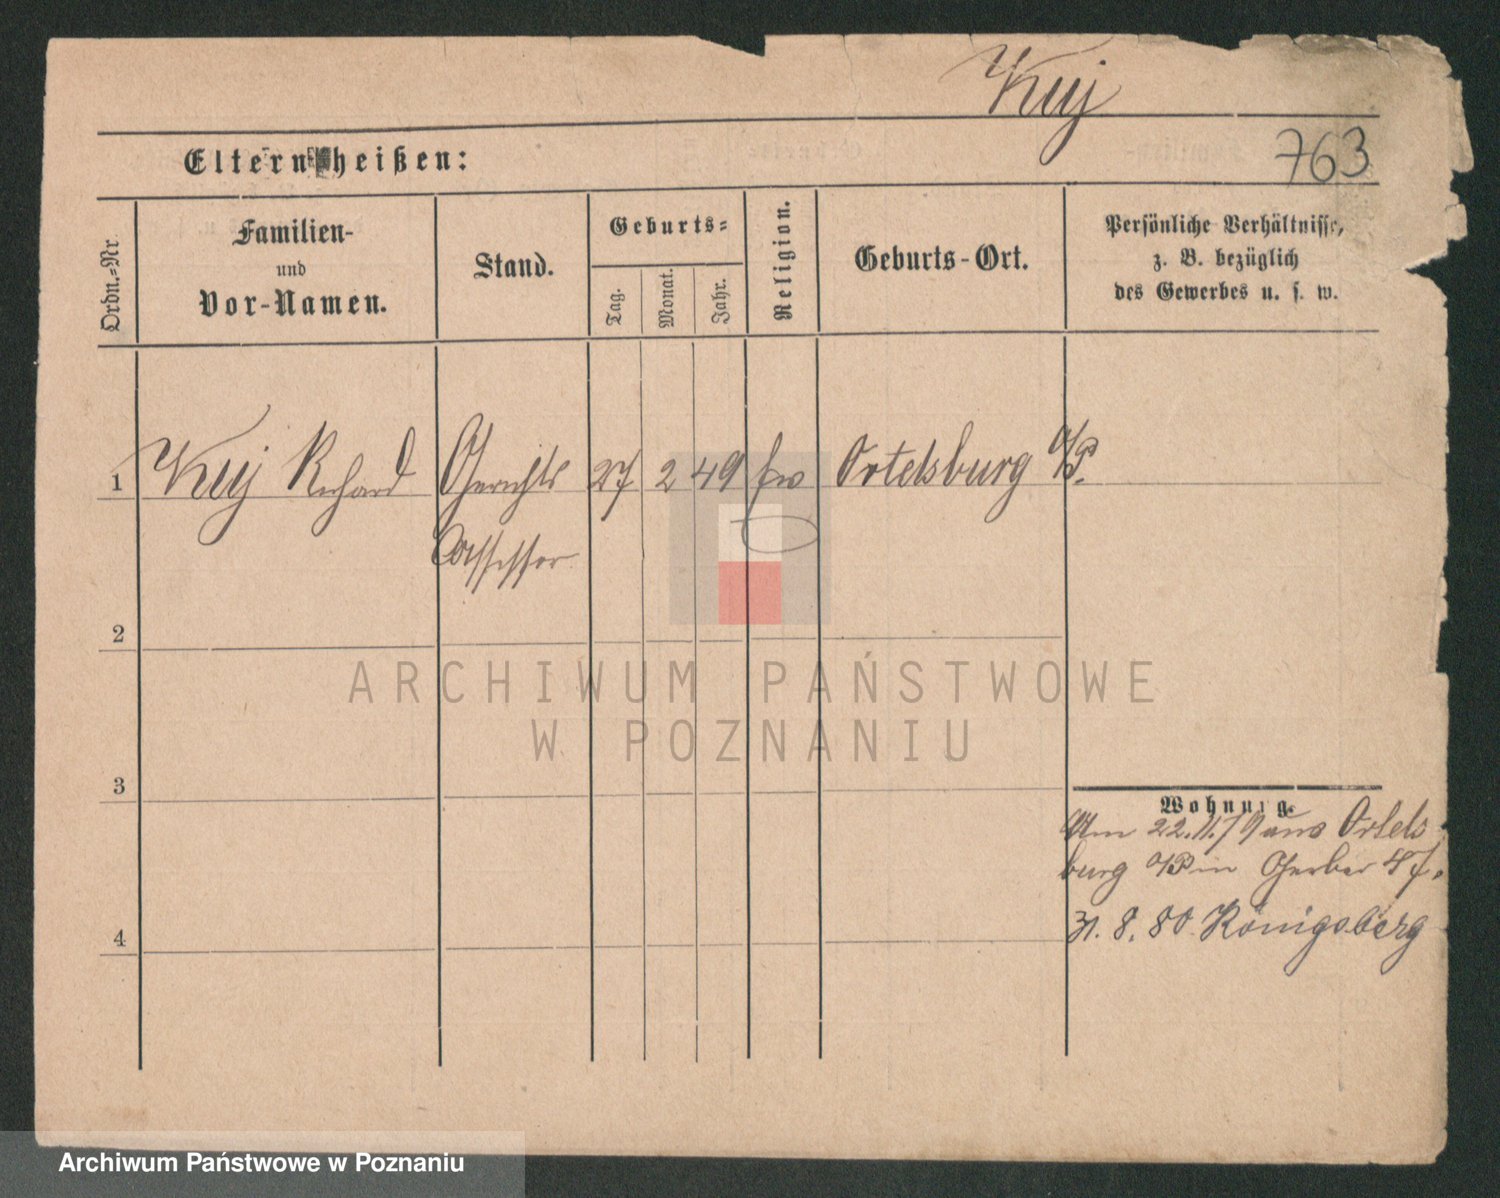 Kuj
763
Eltern heißen:
Ordn.=Nr
Familien-
und
Vor-Namen.
Stand.
Geburts=
Tag.
Monat.
Jahr.
Religion.
Geburts-Ort.
Persönliche Verhältnisse,
z. B. bezüglich
des Gewerbes u. s. w.
1
Kuj Richard
Gerichts
27
2
49
Ortelsburg O/P.
Assessor
2
ARCHIWUM PAŃSTWOWE
W POZNANIU
3
Wohnung.
Am 22.11.79 aus Ortels
burg O/P in Gerber 47.
4
31. 8. 80. Königsberg
Archiwum Państwowe w Poznaniu